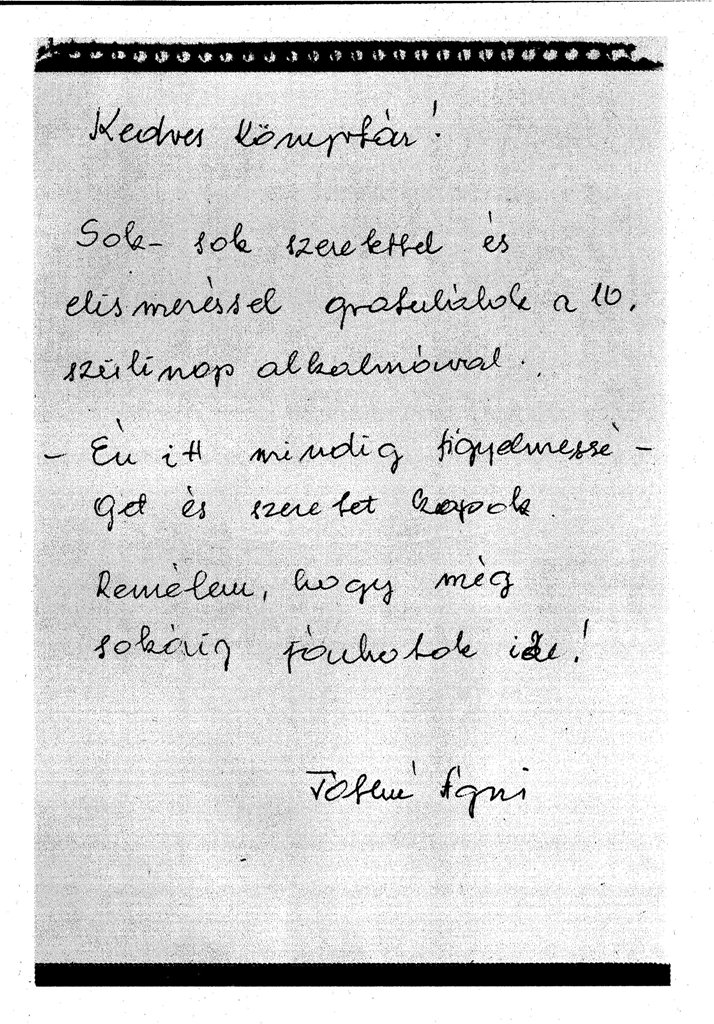 Kedves Könyvtár!
Sok-sok szeretettel és
elismeréssel gratulálok a 10.
szülinap alkalmával.
- Én itt mindig figyelmessé-
get és szeretet kapok.
Remélem, hogy még
sokáig járhatok ide!
Tóthné Ági